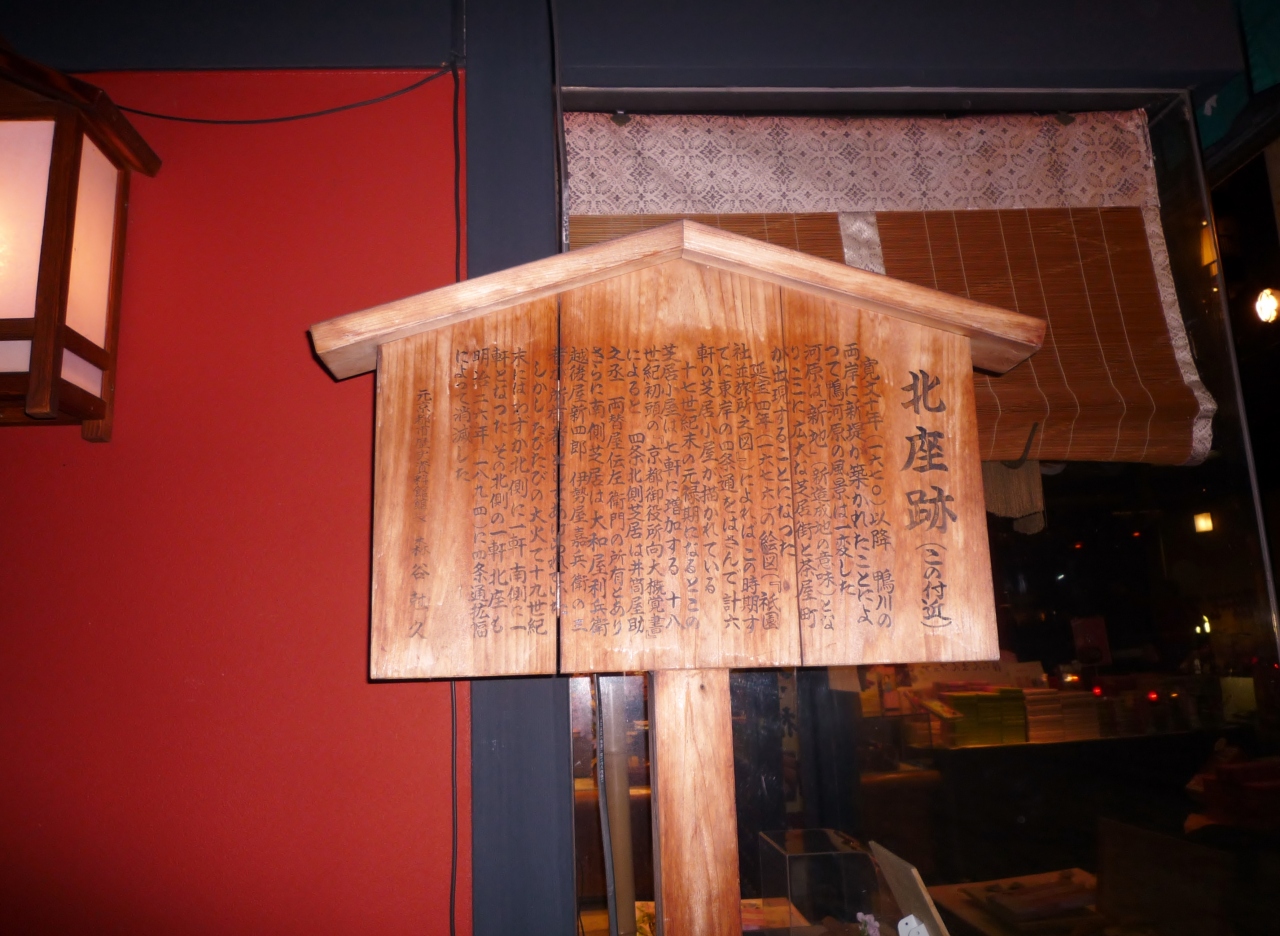 北座跡(この付近)
寛文十年(一六七〇)以降 鴨川の
両岸に新堤が築かれたことによ
って鴨河原の風景は一変した
河原は「新地」(新造成地の意味)とな
りここに広大な芝居街と茶屋町
が出現することになった
延宝四年(一六七六)の絵図(『祇園
社並旅所之図』)によれば この時期す
でに東岸の四条通をはさんで計六
軒の芝居小屋が描かれている
十七世紀末の元禄期になるとこの
芝居小屋は七軒に増加する 十八
世紀初頭の『京都御役所向大概覚書』
によると 四条北側芝居は井筒屋助
之丞 両替屋伝左衛門の所有とあり
さらに南側芝居は 大和屋利兵衛
越後屋新四郎 伊勢屋嘉兵衛の三
しかしたびたびの大火で十九世紀
末にはわずか北側に一軒 南側に一
軒とはった その北側の一軒 北座も
明治二六年(一八九四)に四条通拡幅
によって消滅した
森谷 尅久